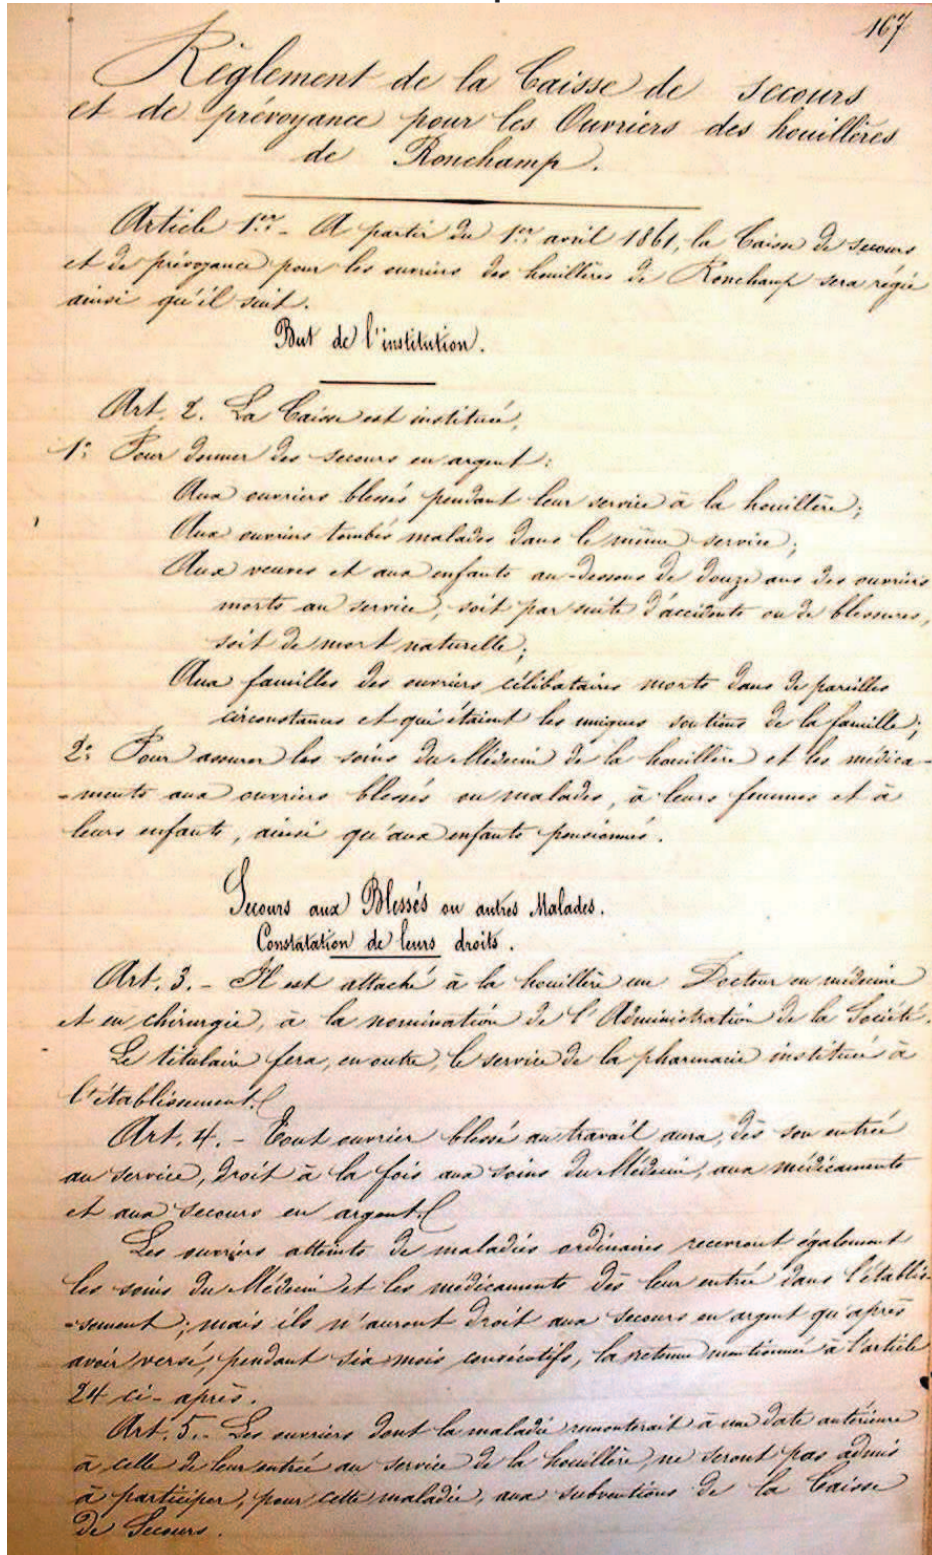 167
Règlement de la Caisse de secours
et de prévoyance pour les Ouvriers des houillères
de Ronchamp.
Article 1er.- A partir du 1er avril 1861, la Caisse de secours
et de prévoyance pour les ouvriers des houillères de Ronchamp sera régie
ainsi qu'il suit.
But de l'institution.
Art. 2. La Caisse est instituée,
1º: Pour donner des secours en argent:
Aux ouvriers blessés pendant leur service à la houillère;
Aux ouvriers tombés malades dans le même service;
Aux veuves et aux enfants au-dessous de douze ans des ouvriers
morts au service, soit par suite d'accidents ou de blessures,
soit de mort naturelle;
Aux familles des ouvriers célibataires morts dans de pareilles
circonstances et qui étaient les uniques soutiens de la famille;
2º: Pour assurer les soins du Médecin de la houillère et les médica-
-ments aux ouvriers blessés ou malades, à leurs femmes et à
leurs enfants, ainsi qu'aux enfants pensionnés.
Secours aux Blessés ou autres Malades.
Constatation de leurs droits.
Art. 3.- Il est attaché à la houillère un Docteur en médecine
et en chirurgie, à la nomination de l'Administration de la Société.
Le titulaire fera, en outre, le service de la pharmacie instituée à
l'établissement.
Art. 4.- Tout ouvrier blessé au travail aura, dès son entrée
au service, droit à la fois aux soins du Médecin, aux médicaments
et aux secours en argent.
Les ouvriers atteints de maladies ordinaires recevront également
les soins du Médecin et les médicaments dès leur entrée dans l'établis-
-sement; mais ils n'auront droit aux secours en argent qu'après
avoir versé, pendant six mois consécutifs, la retenue mentionnée à l'article
24 ci-après.
Art. 5.- Les ouvriers dont la maladie remonterait à une date antérieure
à celle de leur entrée au service de la houillère, ne seront pas admis
à participer, pour cette maladie, aux subventions de la Caisse
de Secours.